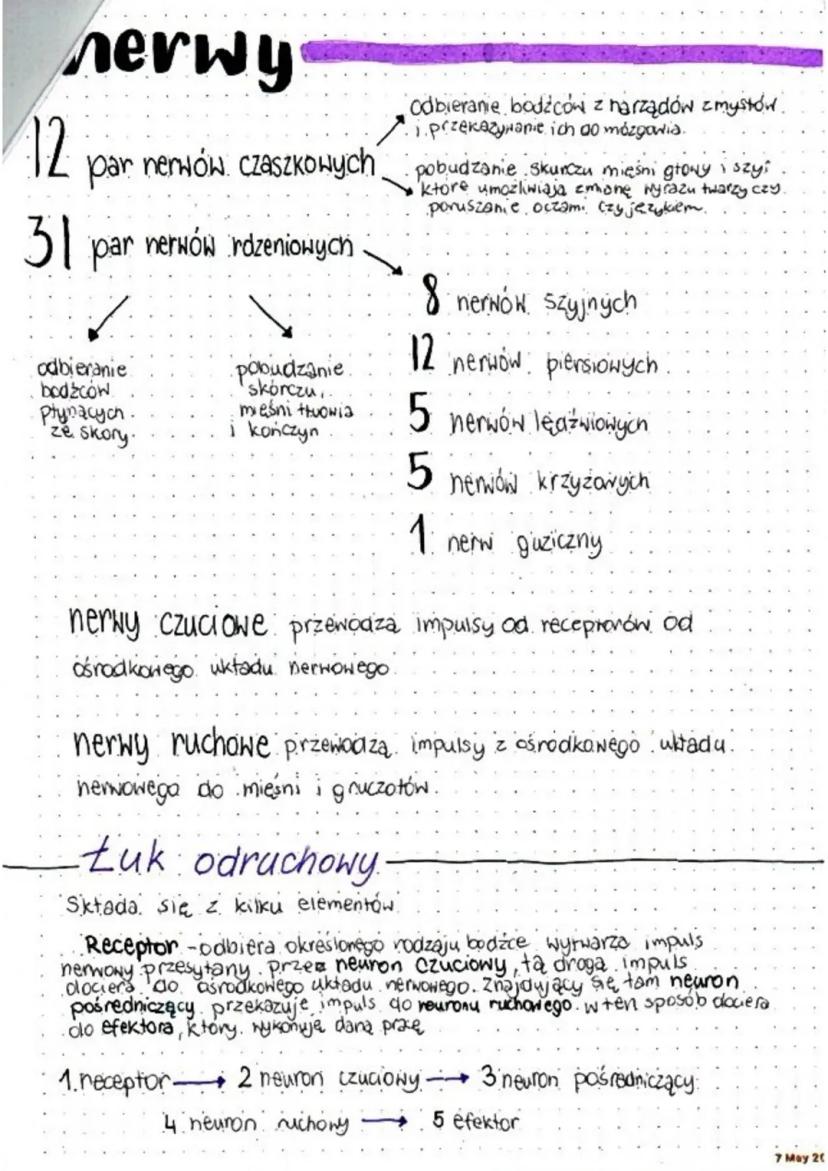 nerwy
12 par nerwów czaszkowych
odbieranie bodźców z narządów zmysłów
i przekazywanie ich do mózgowia.
pobudzanie skurczu mięśni głowy i szyi
które umożliwiają zmianę wyrazu twarzy czy
poruszanie oczami czy językiem.
31 par nerwów rdzeniowych
odbieranie
bodźców
płynących
ze skóry.
pobudzanie
skórczu
mięśni tłuowia
i kończyn
8 nerwów szyjnych
12 nerwów piersiowych
5 nerwów lędźwiowych
5 nerwów krzyżowych
1 nerw guziczny
nerwy czuciowe przewodzą impulsy od receptorów od
ośrodkowego układu nerwowego
nerwy ruchowe przewodzą impulsy z ośrodkowego układu
nerwowego do mięśni i gruczotów.
Łuk odruchowy
Składa się z kilku elementów
Receptor - odbiera określonego rodzaju bodźce wytwarza impuls
nerwowy przesyłany przez neuron czuciowy, tą drogą impuls
dociera do ośrodkowego układu nerwowego. Znajdujący się tam neuron
pośredniczący przekazuje impuls do neuronu ruchowego. w ten sposób dociera
do efektora, który wykonuje daną pracę
1. receptor → 2 neuron czuciowy → 3 neuron pośredniczący
4 neuron ruchowy → 5 efektor
7 May 20